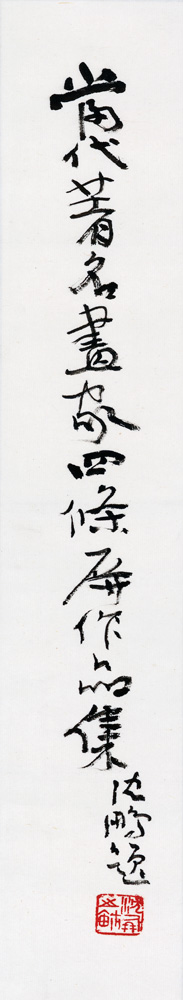 當代著名畫家四條屏作品集
沈鵬題